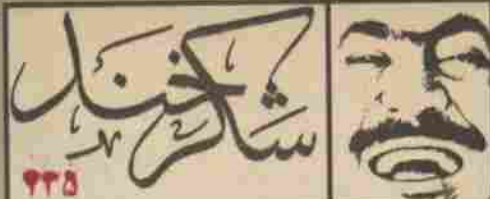 شکرخند
۹۳۵